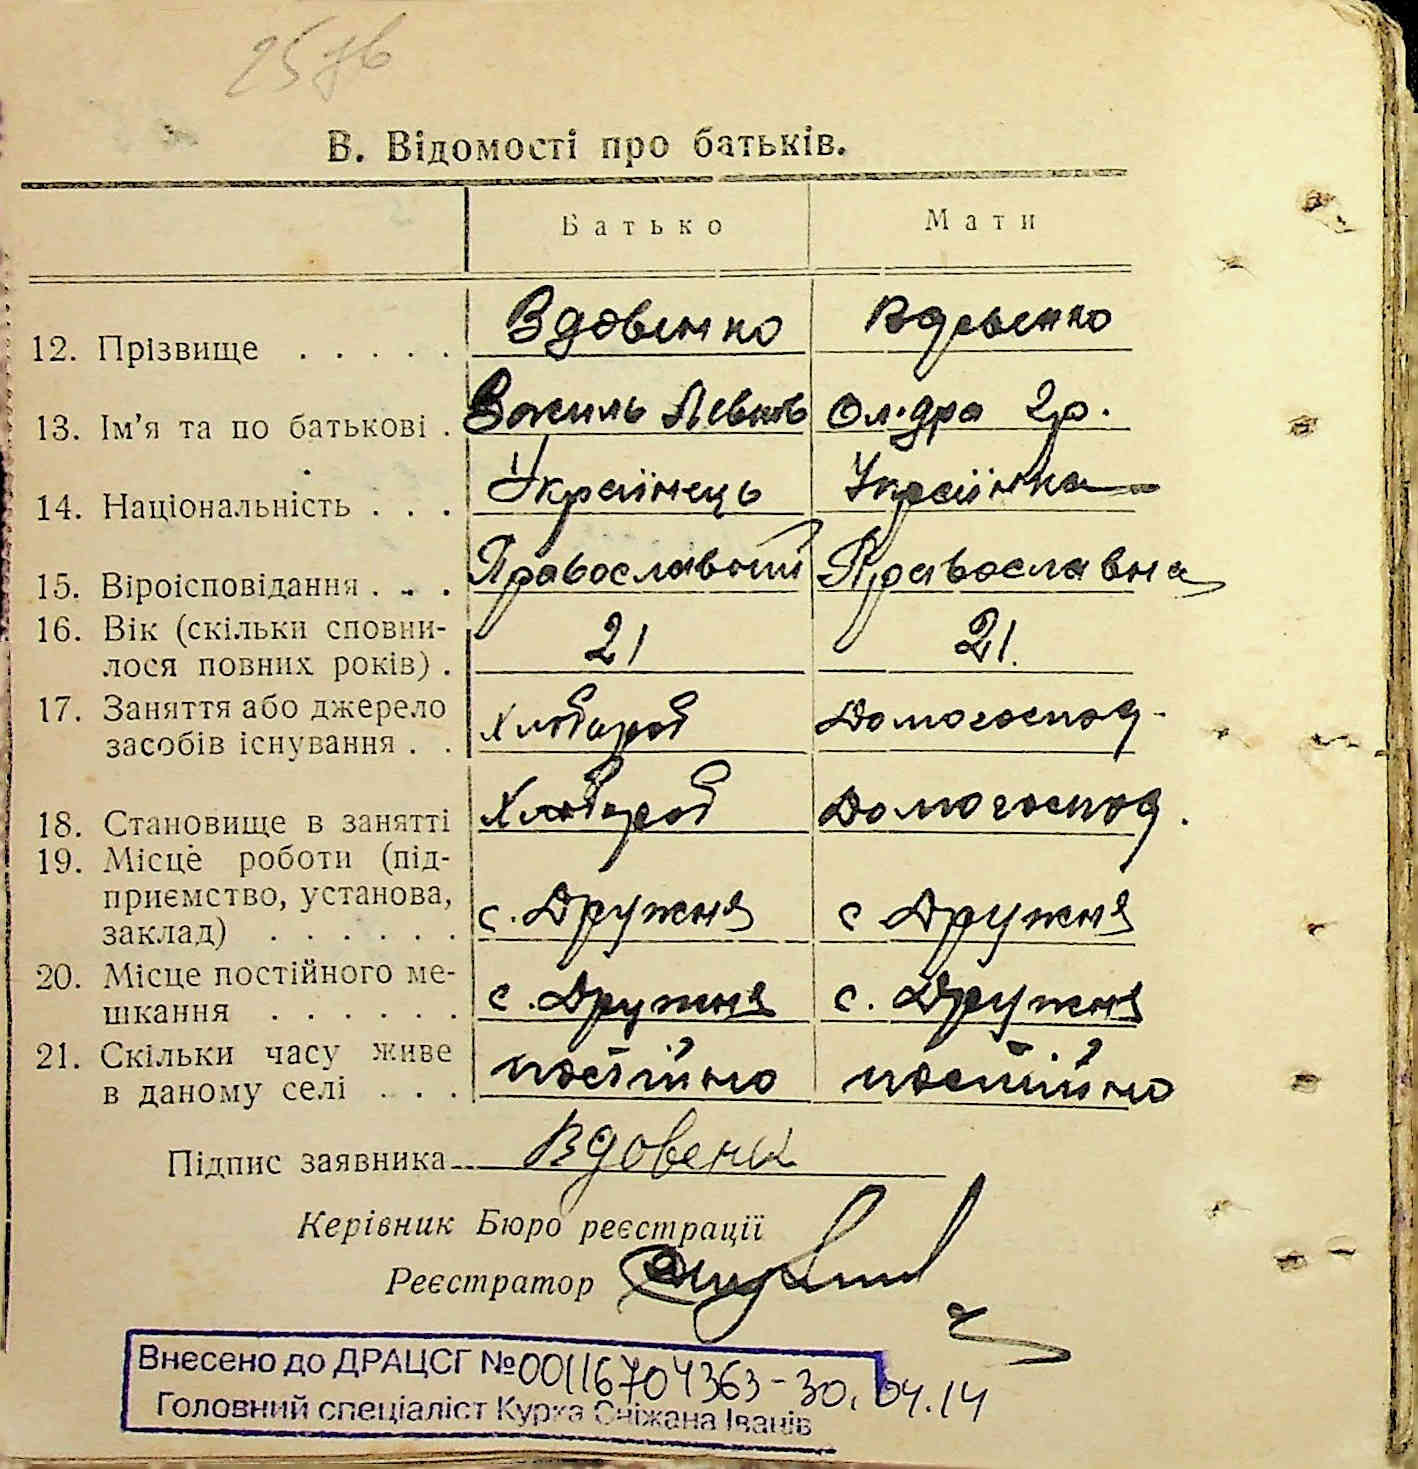 В. Відомості про батьків.
Батько Мати
12. Прізвище . . . . . Вдовенко Вдовенко
13. Ім’я та по батькові . Василь Ол-дра
14. Національність . . . Українець Українка
15. Віроісповідання . . . Православний Православна
16. Вік (скільки сповни-
лося повних років) . 21 21.
17. Заняття або джерело
засобів існування . . Хлібороб Домогоспод.
18. Становище в занятті Хлібороб Домогоспод.
19. Місце роботи (під-
приємство, установа,
заклад) . . . . . . с. Дружня с Дружня
20. Місце постійного ме-
шкання . . . . . . с. Дружня с. Дружня
21. Скільки часу живе
в даному селі . . . постійно постійно
Підпис заявника Вдовенк
Керівник Бюро реєстрації
Реєстратор
Внесено до ДРАЦСГ №00116704363-30.04.14
Головний спеціаліст Курка Сніжана Іванів